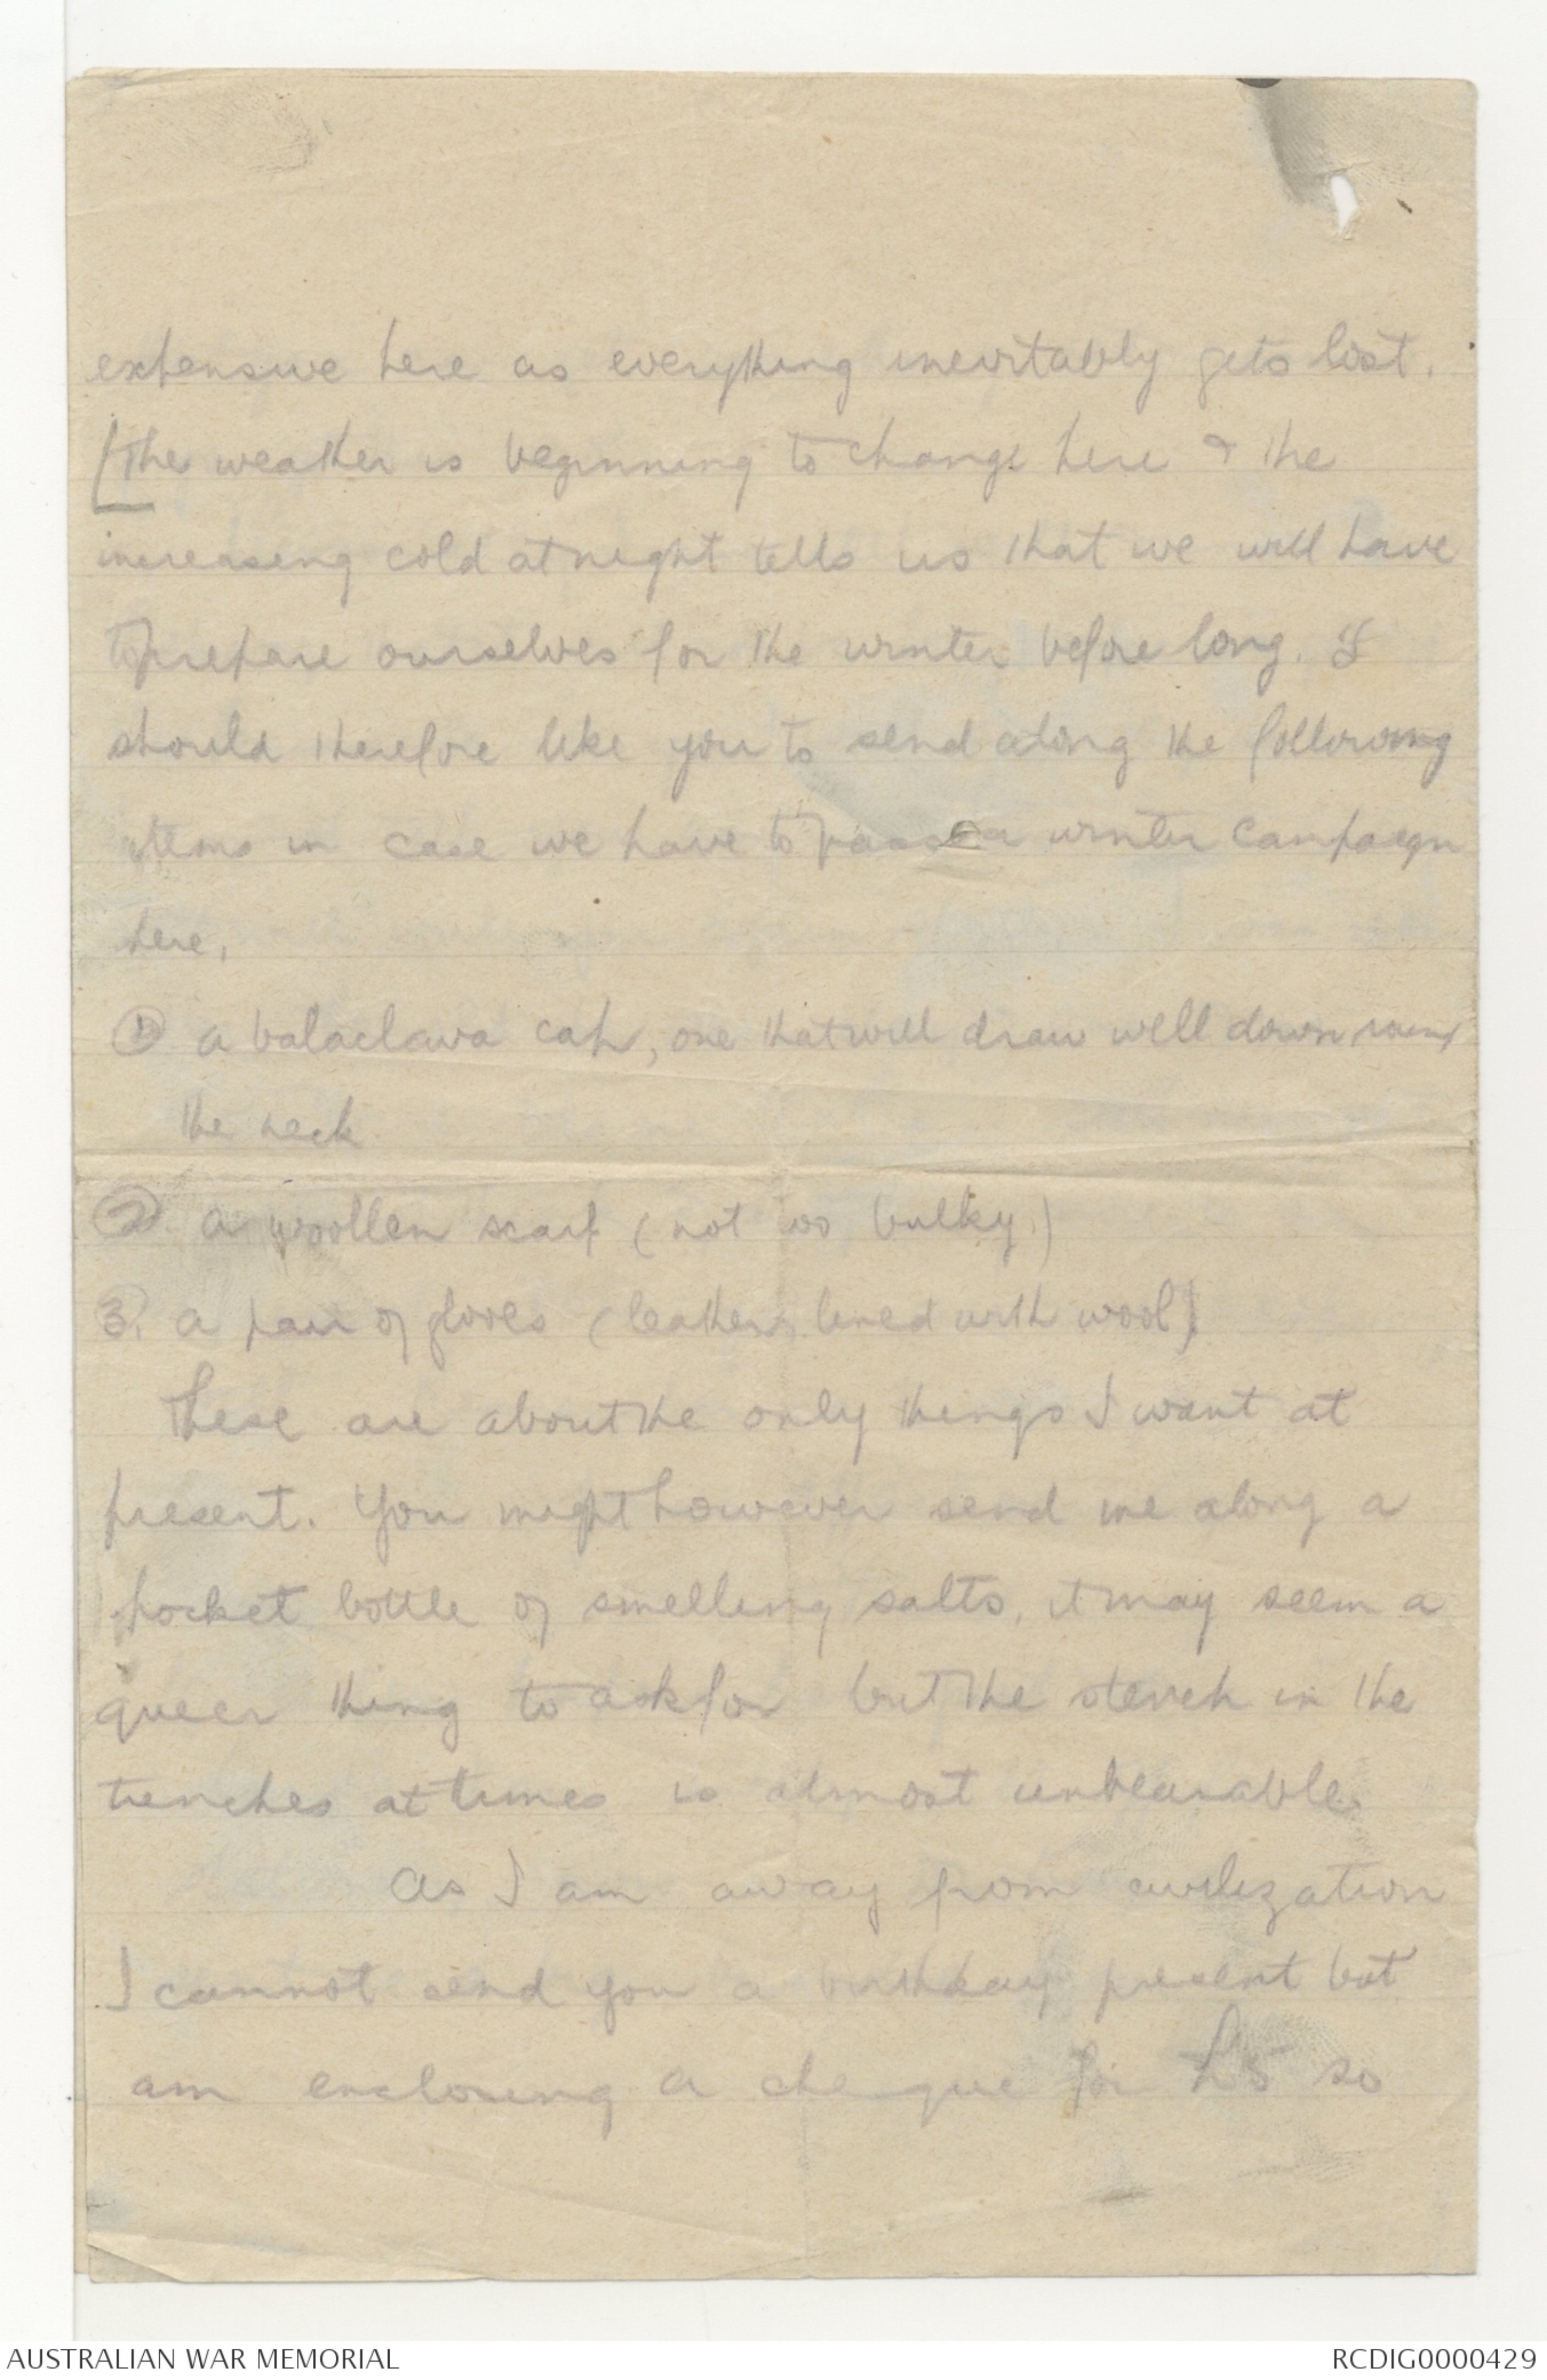 expensive here as everything inevitably gets lost.
[The weather is beginning to change here & the
increasing cold at night tells us that we will have
to prepare ourselves for the winter before long. I
should therefore like you to send along the following
items in case we have to pass a winter campaign
here.
① a balaclava cap, one that will draw well down round
the neck.
② a woollen scarf (not too bulky.)
3. a pair of gloves (leather, lined with wool)
These are about the only things I want at
present. You might however send me along a
pocket bottle of smelling salts, it may seem a
queer thing to ask for but the stench in the
trenches at times is almost unbearable.
As I am away from civilization
I cannot send you a birthday present but
am enclosing a cheque for £5 so
AUSTRALIAN WAR MEMORIAL
RCDIG0000429